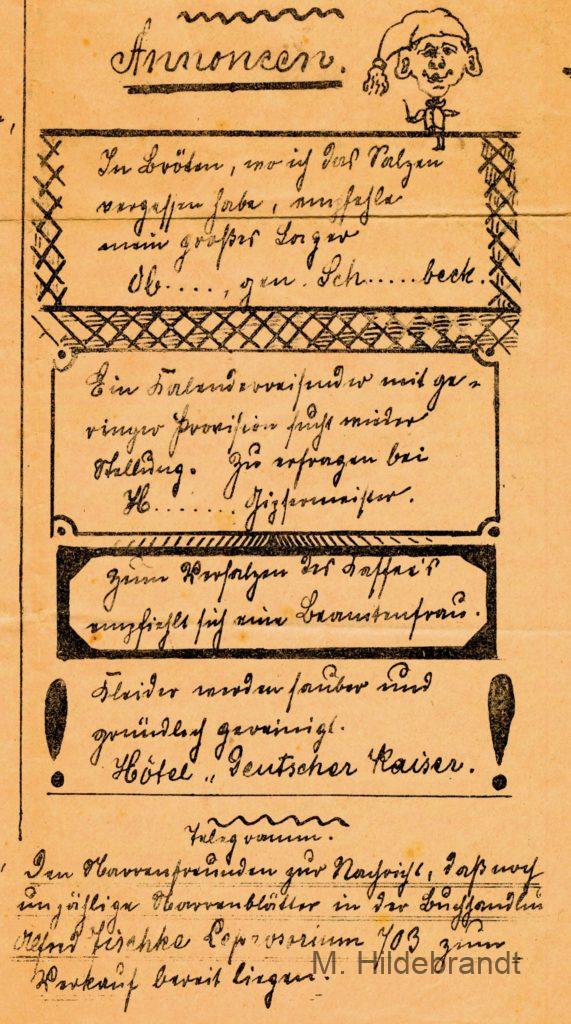 Annoncen.
In Bröten, wo ich das Salzen
vergessen habe, empfehle
mein großes Lager
Ob...., gen. Sch.....beck.
Ein Kalenderreisender mit ge-
ringer Provision sucht wieder
Stellung. Zu erfragen bei
H........ Gipsermeister.
Zum Versalzen des Kaffee's
empfiehlt sich eine Beamtenfrau.
Kleider werden sauber und
gründlich gereinigt.
Hôtel „Deutscher Kaiser.
Telegramm.
Den Narrenfreunden zur Nachricht, daß noch
unzählige Narrenblätter in der Buchhandlu
Zischke Leprosorium 703 zum
Verkauf bereit liegen.
M. Hildebrandt